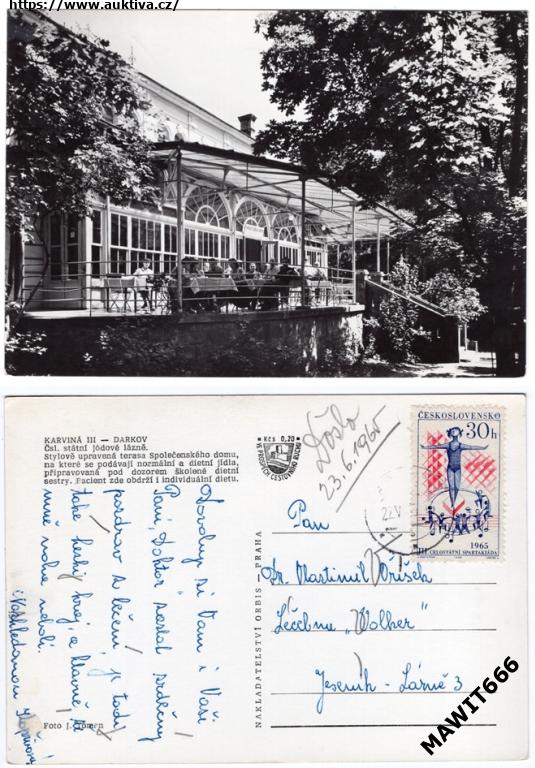 https://www.auktiva.cz/
KARVINÁ III — DARKOV
Čsl. státní jódové lázně.
Stylově upravená terasa Společenského domu,
na které se podávají normální a dietní jídla,
připravovaná pod dozorem školené dietní
sestry. Pacient zde obdrží i individuální dietu.
Kčs 0,20
VE PROSPĚCH CESTOVNÍHO RUCHU
Došlo
23.6.1965
ČESKOSLOVENSKO
30h
1965
III CELOSTÁTNÍ SPARTAKIÁDA
Dovoluji si Vám i Vaší
Paní Doktor zaslat srdečný
pozdrav z léčení, je tady
také hezký kraj, a hlavně, že
mně nohe nebolí.
Foto J.
NAKLADATELSTVÍ ORBIS - PRAHA
Pan
Dr. Rastimil
Léčebna „Wolker"
Jeseník - Lázně 3
MAWIT666